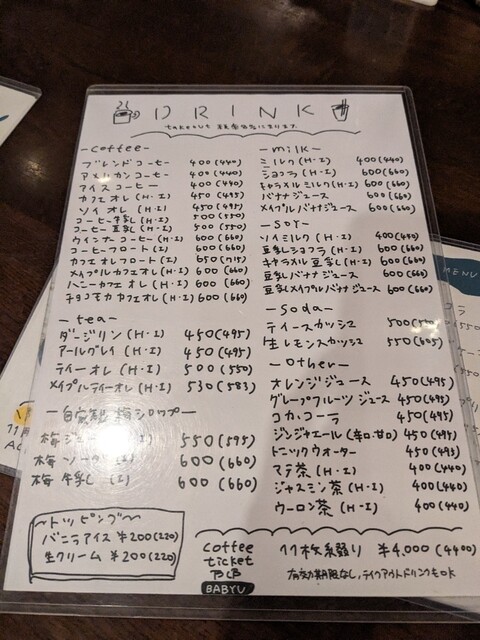 DRINK
takeout
-coffee-
ブレンドコーヒー 400(440)
アメリカンコーヒー 400(440)
アイスコーヒー 400(440)
カフェオレ(H・I) 450(495)
ソイオレ(H・I) 450(495)
コーヒー牛乳(H・I) 500(550)
コーヒー豆乳(H・I) 500(550)
ウインナーコーヒー(H・I) 600(660)
コーヒーフロート(H・I) 600(660)
カフェオレフロート(I) 650(715)
メイプルカフェオレ(H・I) 600(660)
ハニーカフェオレ(H・I) 600(660)
チョコモカカフェオレ(H・I) 600(660)
-tea-
ダージリン(H・I) 450(495)
アールグレイ(H・I) 450(495)
ティーオレ(H・I) 500(550)
メイプルティーオレ(H・I) 530(583)
-自家製梅シロップ-
梅ジュース(I) 550(595)
梅ソーダ(I) 600(660)
梅牛乳(I) 600(660)
~トッピング~
バニラアイス ¥200(220)
生クリーム ¥200(220)
-milk-
ミルク(H・I) 400(440)
ショコラ(H・I) 600(660)
キャラメルミルク(H・I) 600(660)
バナナジュース 600(660)
メイプルバナナジュース 600(660)
-soy-
ソイミルク(H・I) 400(440)
豆乳ショコラ(H・I) 600(660)
キャラメル豆乳(H・I) 600(660)
豆乳バナナジュース 600(660)
豆乳メイプルバナナジュース 600(660)
-soda-
ティースカッシュ 500(550)
生レモンスカッシュ 550(605)
-other-
オレンジジュース 450(495)
グレープフルーツジュース 450(495)
コカ・コーラ 450(495)
ジンジャエール(辛口・甘口) 450(495)
トニックウォーター 450(495)
マテ茶(H・I) 400(440)
ジャスミン茶(H・I) 400(440)
ウーロン茶(H・I) 400(440)
coffee
ticket
BABYU
11枚綴り ¥4,000(4400)
有効期限なし、テイクアウトドリンクもOK
MENU